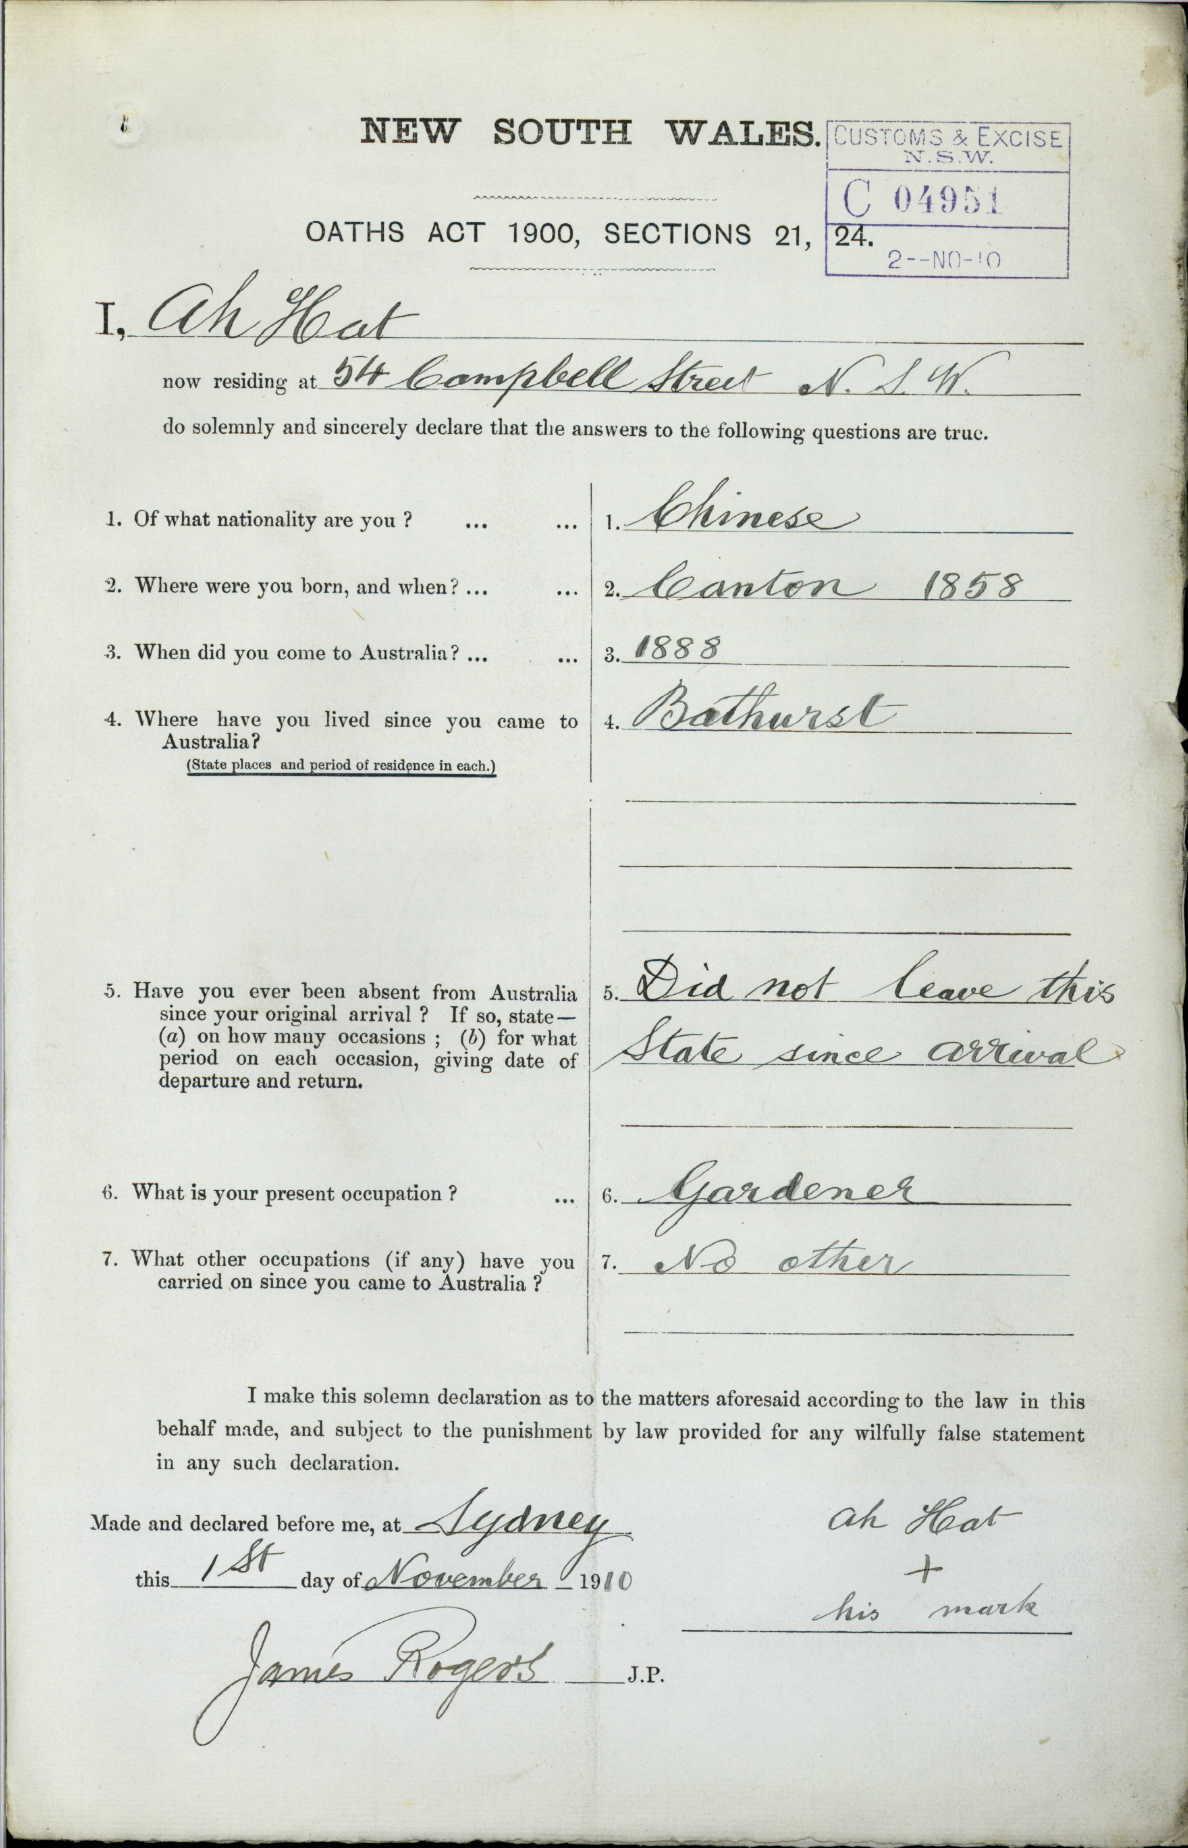 NEW SOUTH WALES.
CUSTOMS & EXCISE
N.S.W.
C 04951
2--NO-10
OATHS ACT 1900, SECTIONS 21, 24.
I, Ah Hat
now residing at 54 Campbell Street N. S. W.
do solemnly and sincerely declare that the answers to the following questions are true.
1. Of what nationality are you ? ... ... 1. Chinese
2. Where were you born, and when? ... ... 2. Canton 1858
3. When did you come to Australia? ... ... 3. 1888
4. Where have you lived since you came to 4. Bathurst
Australia?
(State places and period of residence in each.)
5. Have you ever been absent from Australia 5. Did not leave this
since your original arrival ? If so, state—
(a) on how many occasions ; (b) for what State since arrival
period on each occasion, giving date of
departure and return.
6. What is your present occupation ? ... 6. Gardener
7. What other occupations (if any) have you 7. No other
carried on since you came to Australia ?
I make this solemn declaration as to the matters aforesaid according to the law in this
behalf made, and subject to the punishment by law provided for any wilfully false statement
in any such declaration.
Made and declared before me, at Sydney
this 1st day of November 1910
Ah Hat
+
his mark
James Rogers J.P.